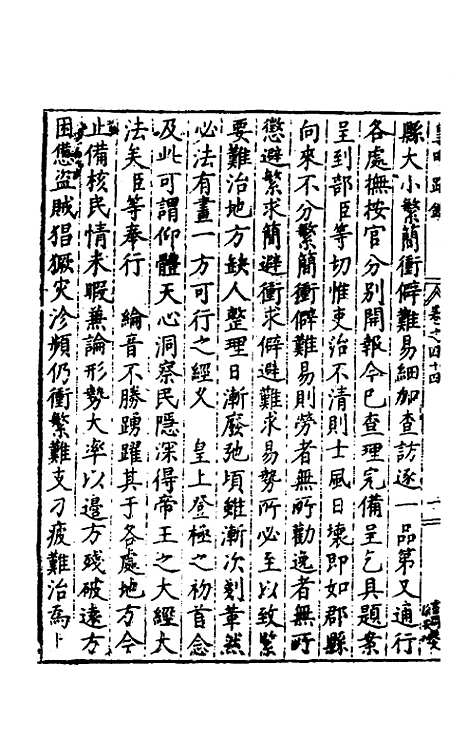 皇明疏鈔 卷之四十四
縣大小繁簡衝僻難易細加查訪逐一品第又通行
各處撫按官分別開報今已查理完備呈乞具題案
呈到部臣等切惟吏治不清則士風日壞即如郡縣
向來不分繁簡衝僻難易則勞者無所勸逸者無所
懲避繁求簡避衝求僻避難求易勢所必至以致繁
要難治地方缺人整理日漸廢弛頃雖漸次刻革然
必法有畫一方可行之經乂 皇上登極之初首念
及此可謂仰體天心洞察民隱深得帝王之大經大
法矣臣等奉行 綸音不勝踴躍其于各處地方今
止備核民情未暇兼論形勢大率以邊方殘破遠方
困憊盜賊猖獗灾沴頻仍衝繁難支刁疲難治爲上